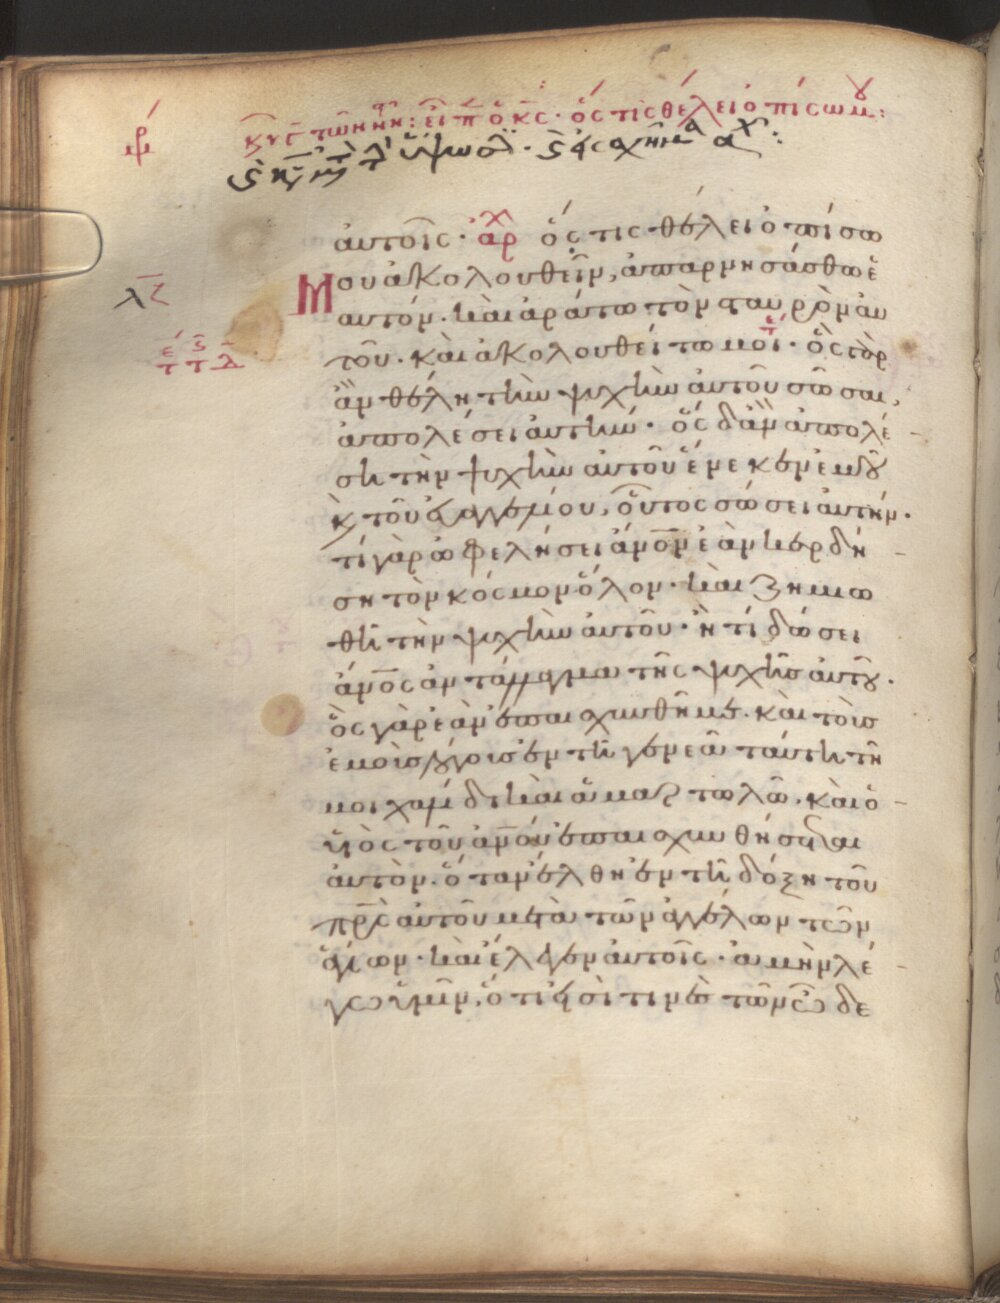 ὅς τις θέλει ὀπίσω μου:
αὐτοῖς· ἀρχ ὅς τις θέλει ὀπίσω
μου ἀκολουθεῖν, ἀπαρνησάσθω ἑ
αυτόν. καὶ ἀράτω τὸν σταυρὸν αὐ
τοῦ. καὶ ἀκολουθείτω μοι· ὃς γὰρ
ἂν θέλη τὴν ψυχὴν αὐτοῦ σῶσαι,
ἀπολέσει αὐτήν· ὃς δἂν ἀπολέ
ση τὴν ψυχὴν αὐτοῦ ἕνεκεν ἐμοῦ
κ τοῦ εὐαγγελίου, οὗτος σώσει αὐτήν.
τί γὰρ ὠφελήσει ἀνον ἐὰν κερδή
ση τὸν κόσμον ὅλον. καὶ ζημιω
θῆ τὴν ψυχὴν αὐτοῦ· ἢ τί δώσει
ἀνος ἀντάλλαγμα τῆς ψυχῆς αὐτοῦ.
ὃς γὰρ ἐὰν ἐπαισχυνθῆ με. καὶ τοὺς
ἐμοὺς λόγους ἐν τῆ γενεᾶ ταύτη τῆ
μοιχαλίδι καὶ ἁμαρτωλῶ. καὶ ὁ
υἱὸς τοῦ ἀνου ἐπαισχυνθήσεται
αὐτὸν. ὅταν ἔλθη ἐν τῆ δόξη τοῦ
πρς αὐτοῦ μετὰ τῶν ἀγγέλων τῶν
ἁγίων· καὶ ἔλεγεν αὐτοῖς· ἀμὴν λέ
γω ὑμῖν, ὅτι εἰσί τινες τῶν ὧδε